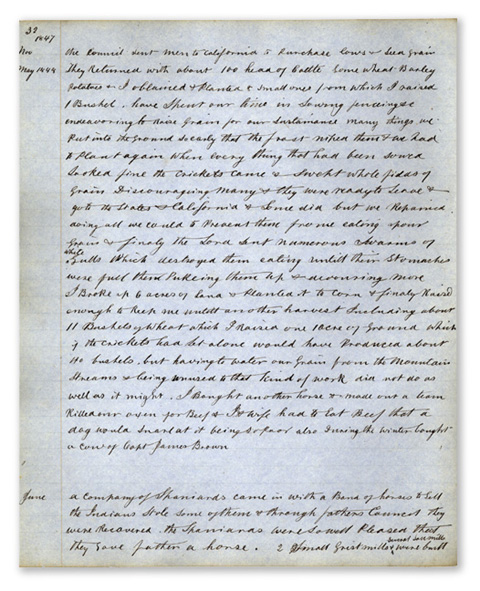 32
1847
Nov the Council sent men to California to Purchase Cows & Seed Grain
May 1848 They Returned with about 100 head of Cattle Some Wheat Barley
Potatoes & I obtained & Planted 6 Small ones from which I raised
1 Bushel. have Spent our time in Sowing fencing &c
endeavoring to Raise Grain for our Sustainance many things we
Put into the Ground so early that the frost niped them & we had
to Plant again When every thing that had been sowed
Looked fine the Crickets came & Swept whole fields of
Grain Discouraging Many & they were ready to Leave &
go to the States & California & Some did but we Remained
doing all we could to Prevent them from eating our
Grain & finaly the Lord Sent Numerous Swarms of
White
Gulls Which destroyed them eating untill their Stomaches
were full then Pukeing them up & devouring more
I Broke up 6 acres of land & Planted it to Corn & finaly Raised
enough to keep me untill another harvest Including about
11 Bushels of Wheat which I Raised one 1 acre of Ground Which
if the Crickets had let alone would have Produced about
40 bushels. but having to water our Grain from the Mountain
Streams & being unused to that kind of work did not do as
well as it might. I Bought another horse & made out a team
Killed our oxen for Beef & I & wife had to Eat Beef that a
dog would Snarl at it being so poor also During the Winter bought
a cow of Capt James Brown
June a company of Spaniards came in with a Band of horses to Sell
the Indians Stole some of them & through fathers Council they
were Recovered the Spaniards were So well Pleased that
they Gave father a horse. 2 Small Gristmills & several saw mills were built